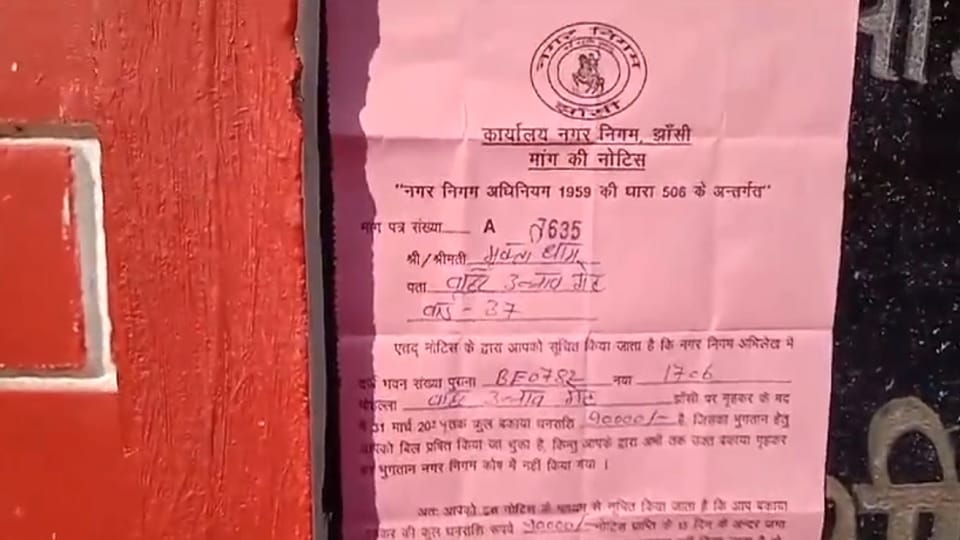 नगर निगम
झाँसी
कार्यालय नगर निगम, झाँसी
मांग की नोटिस
"नगर निगम अधिनियम 1959 की धारा 506 के अन्तर्गत"
मांग पत्र संख्या A 7635
श्री/श्रीमती मुक्ता धाम
पता वाहि उन्नाव गेट
वार्ड - 37
एतद् नोटिस के द्वारा आपको सूचित किया जाता है कि नगर निगम अभिलेख में
दर्ज भवन संख्या पुराना BE0782 नया 1706
मोहल्ला वाहि उन्नाव गेट झाँसी पर गृहकर के मद
में 31 मार्च 20 तक कुल बकाया धनराशि 90000/- है, जिसका भुगतान हेतु
आपको बिल प्रेषित किया जा चुका है, किन्तु आपके द्वारा अभी तक उक्त बकाया गृहकर
का भुगतान नगर निगम कोष में नहीं किया गया ।
अतः आपको इस नोटिस के माध्यम से सूचित किया जाता है कि आप बकाया
गृहकर की कुल धनराशि रूपये 90000/- नोटिस प्राप्ति के 15 दिन के अन्दर जमा